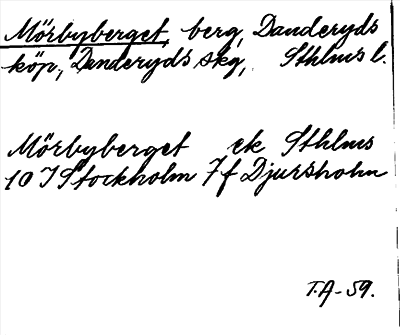 Mörbyberget, berg, Danderyds
köp., Danderyds skg, Sthlms l.
Mörbyberget ek Sthlms
10 I Stockholm 7f Djursholm
T.A-59.